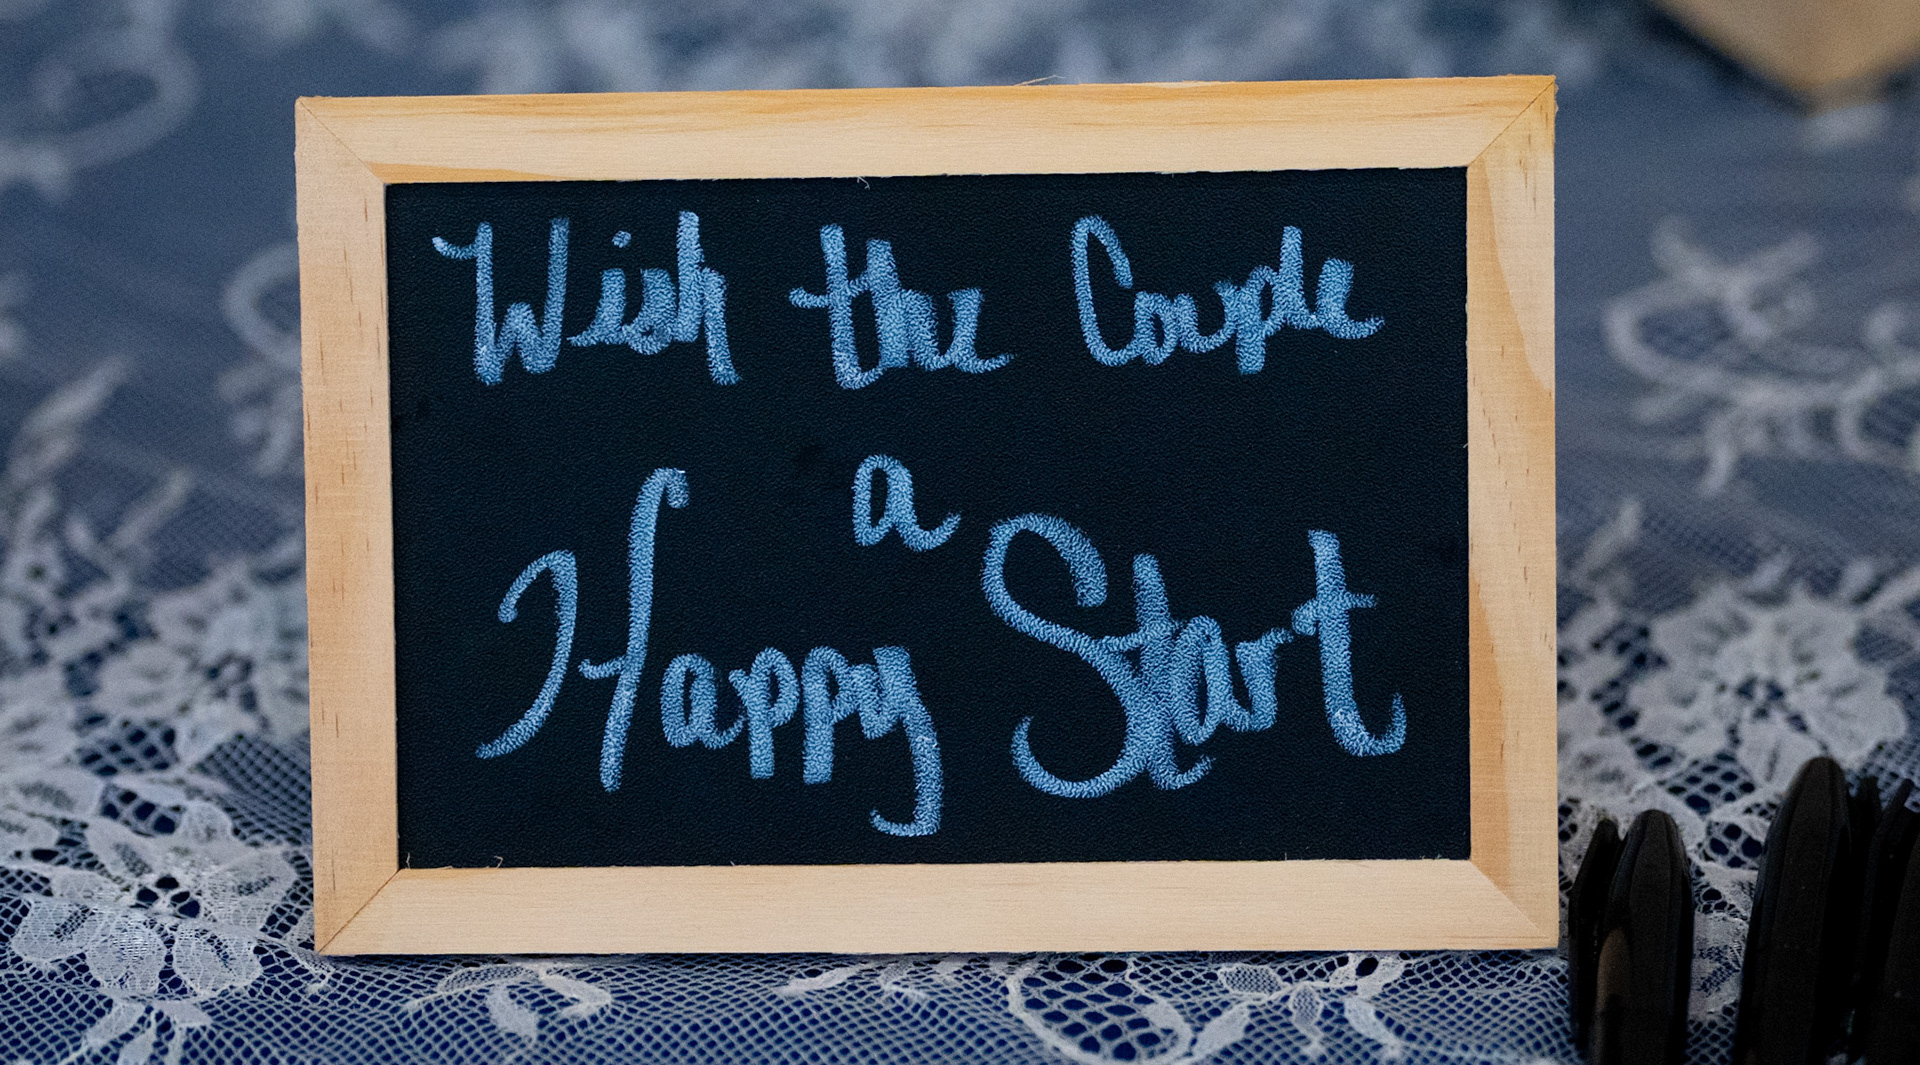 Wish the Couple
a
Happy Start